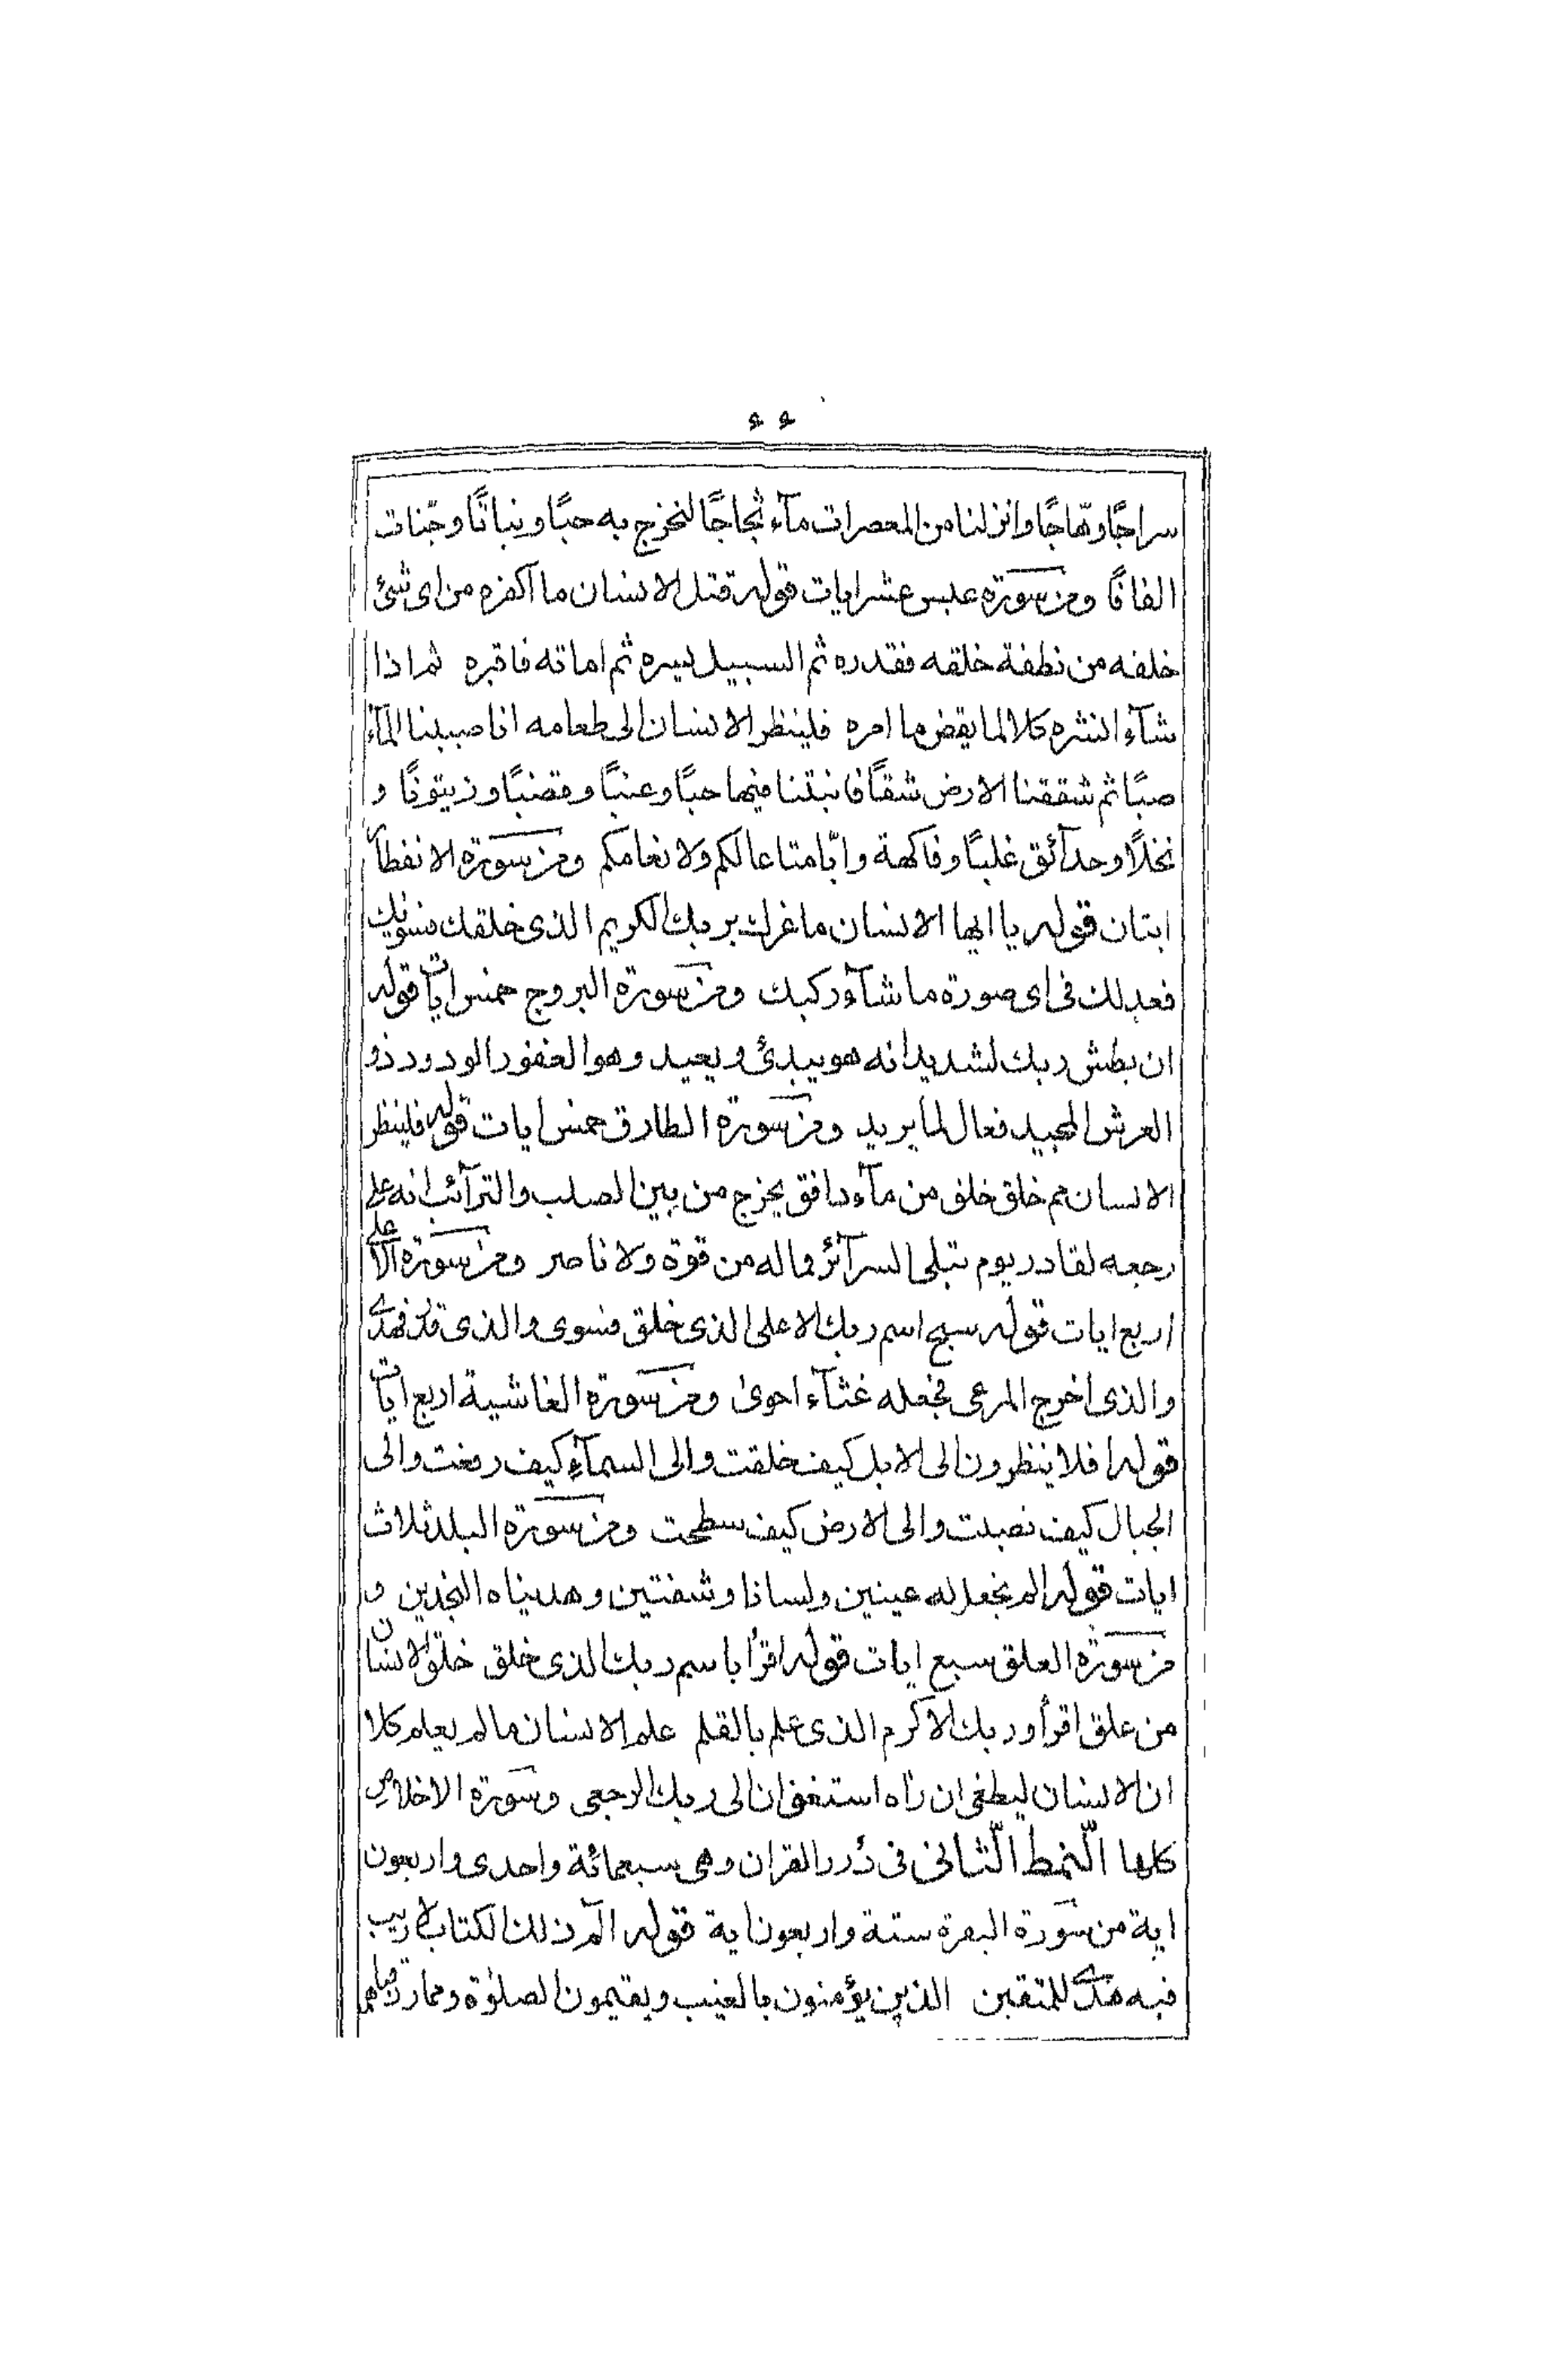 ٤٤
سراجًا وهّاجًا وانزلنا من المعصرات مآء ثجّاجًا لنخرج به حبًا ونباتًا وجّنات
الفافًا ومن سورة عبس عشر ايات قوله قتل الانسان ما اكفره من اى شئ
خلقه من نطفة خلقه فقدره ثم السبيل يسره ثم اماته فاقبره ثم اذا
شآء انشره كلا لما يقض ما امره فلينظر الانسان الى طعامه انا صببنا المآء
صبًا ثم شققنا الارض شقًا فانبتنا فيها حبًا وعنبًا وقضبًا وزيتونًا و
نخلًا وحدآئق غلبًا وفاكهة وابّا متاعا لكم ولانعامكم ومن سورة الانفطار
ايتان قوله يا ايها الانسان ما غرك بربك الكريم الذى خلقك فسويك
فعدلك فى اى صورة ما شآء ركبك ومن سورة البروج خمس ايات قوله
ان بطش ربك لشديد انه هو يبدئ ويعيد وهو الغفور الودود ذو
العرش المجيد فعال لما يريد ومن سورة الطارق خمس ايات قوله فلينظر
الانسان مم خلق خلق من مآء دافق يخرج من بين الصلب والترآئب انه على
رجعه لقادر يوم تبلى السرآئر فما له من قوة ولا ناصر ومن سورة الاعلى
اربع ايات قوله سبح اسم ربك الاعلى الذى خلق فسوى والذى قدر فهدى
والذى اخرج المرعى فجعله غثآء احوى ومن سورة الغاشية اربع ايات
قوله افلا ينظرون الى الابل كيف خلقت والى السمآء كيف رفعت والى
الجبال كيف نصبت والى الارض كيف سطحت ومن سورة البلد ثلاث
ايات قوله الم نجعل له عينين ولسانا وشفتين وهديناه النجدين و
من سورة العلق سبع ايات قوله اقرأ باسم ربك الذى خلق خلق الانسان
من علق اقرأ وربك الاكرم الذى علم بالقلم علم الانسان ما لم يعلم كلا
ان الانسان ليطغى ان رٰاه استغنى ان الى ربك الرجعى وسورة الاخلاص
كلها النّمط الثّانى فى درر القران وهى سبعمائة واحدى واربعون
اية من سورة البقرة ستة واربعون اية قوله الٓم ذلك الكتاب لا ريب
فيه هدى للمتقين الذين يؤمنون بالغيب ويقيمون الصلوٰة ومما رزقناهم